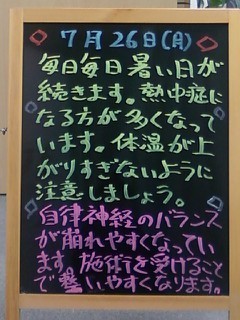 7月26日(月)
毎日毎日暑い日が
続きます。熱中症に
なる方が多くなって
います。体温が上
がりすぎないように
注意しましょう。
自律神経のバランス
が崩れやすくなってい
ます。施術を受けること
で整いやすくなります。